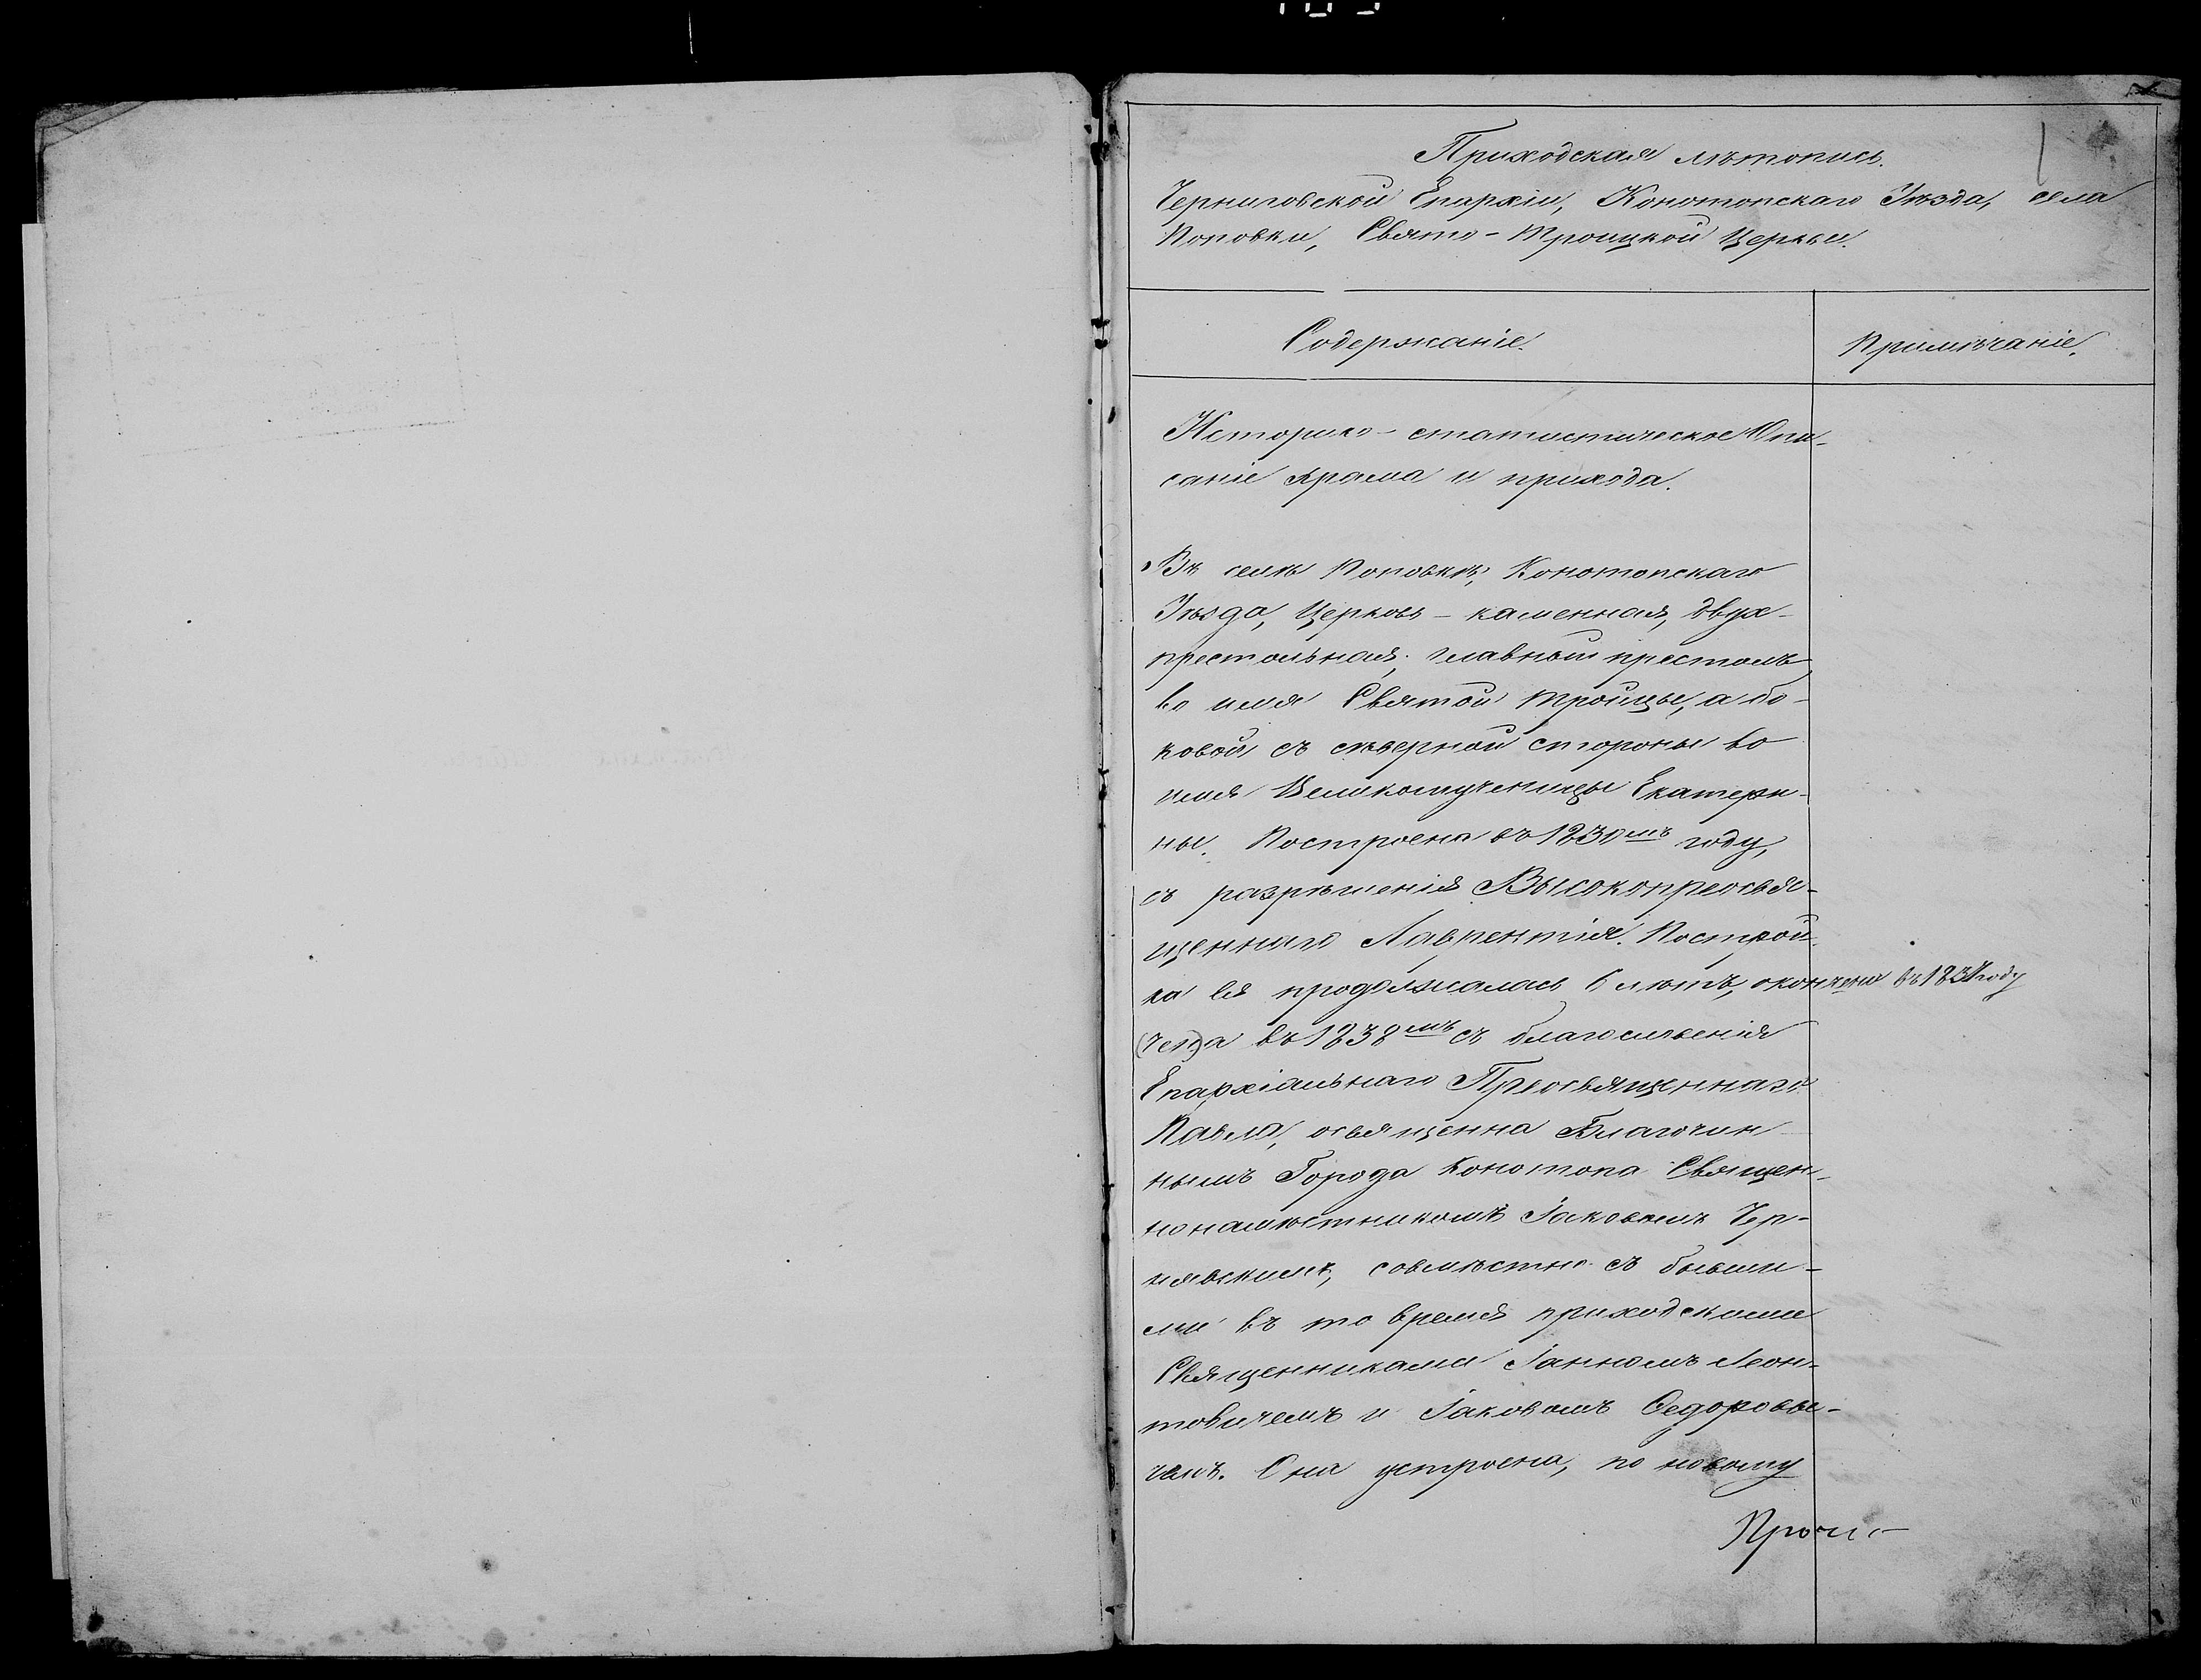 Приходская лѣтопись.
Черниговской Епархіи, Конотопскаго Уѣзда, села
Поповки, Свято-Троицкой Церкви.
Содержаніе.
Примѣчаніе.
Историко-статистическое Опи-
саніе храма и прихода.
Въ селѣ Поповкѣ, Конотопскаго
Уѣзда, Церковь - каменная, двух-
престольная; главный престолъ
во имя Святой Троицы, а бо-
ковой съ сѣверной стороны во
имя Великомученицы Екатери-
ны. Построена въ 1830мъ году,
съ разрѣшенія Высокопреосвя-
щеннаго Лаврентія. Построй-
ка ея продолжалась 6 лѣтъ, окончена въ 1837 году
(чен)а въ 1838мъ съ благословенія
Епархіальнаго Преосвященнаго
Павла, освященна Благочин
нымъ Города Конотопа Священ-
нонамѣстникомъ Іаковомъ Чер-
нявскимъ, совмѣстно съ бывши-
ми въ то время приходскими
Священниками Іанномъ Леон-
товичемъ и Іаковомъ Ѳедорови-
чемъ. Она устроена, по новому